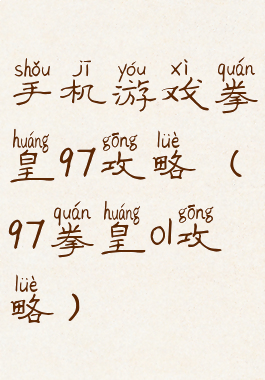 shǒu jī yóu xì quán
手机游戏拳
huáng gōng lüè
皇97攻略（
quán huáng gōng
97拳皇01攻
lüè
略）